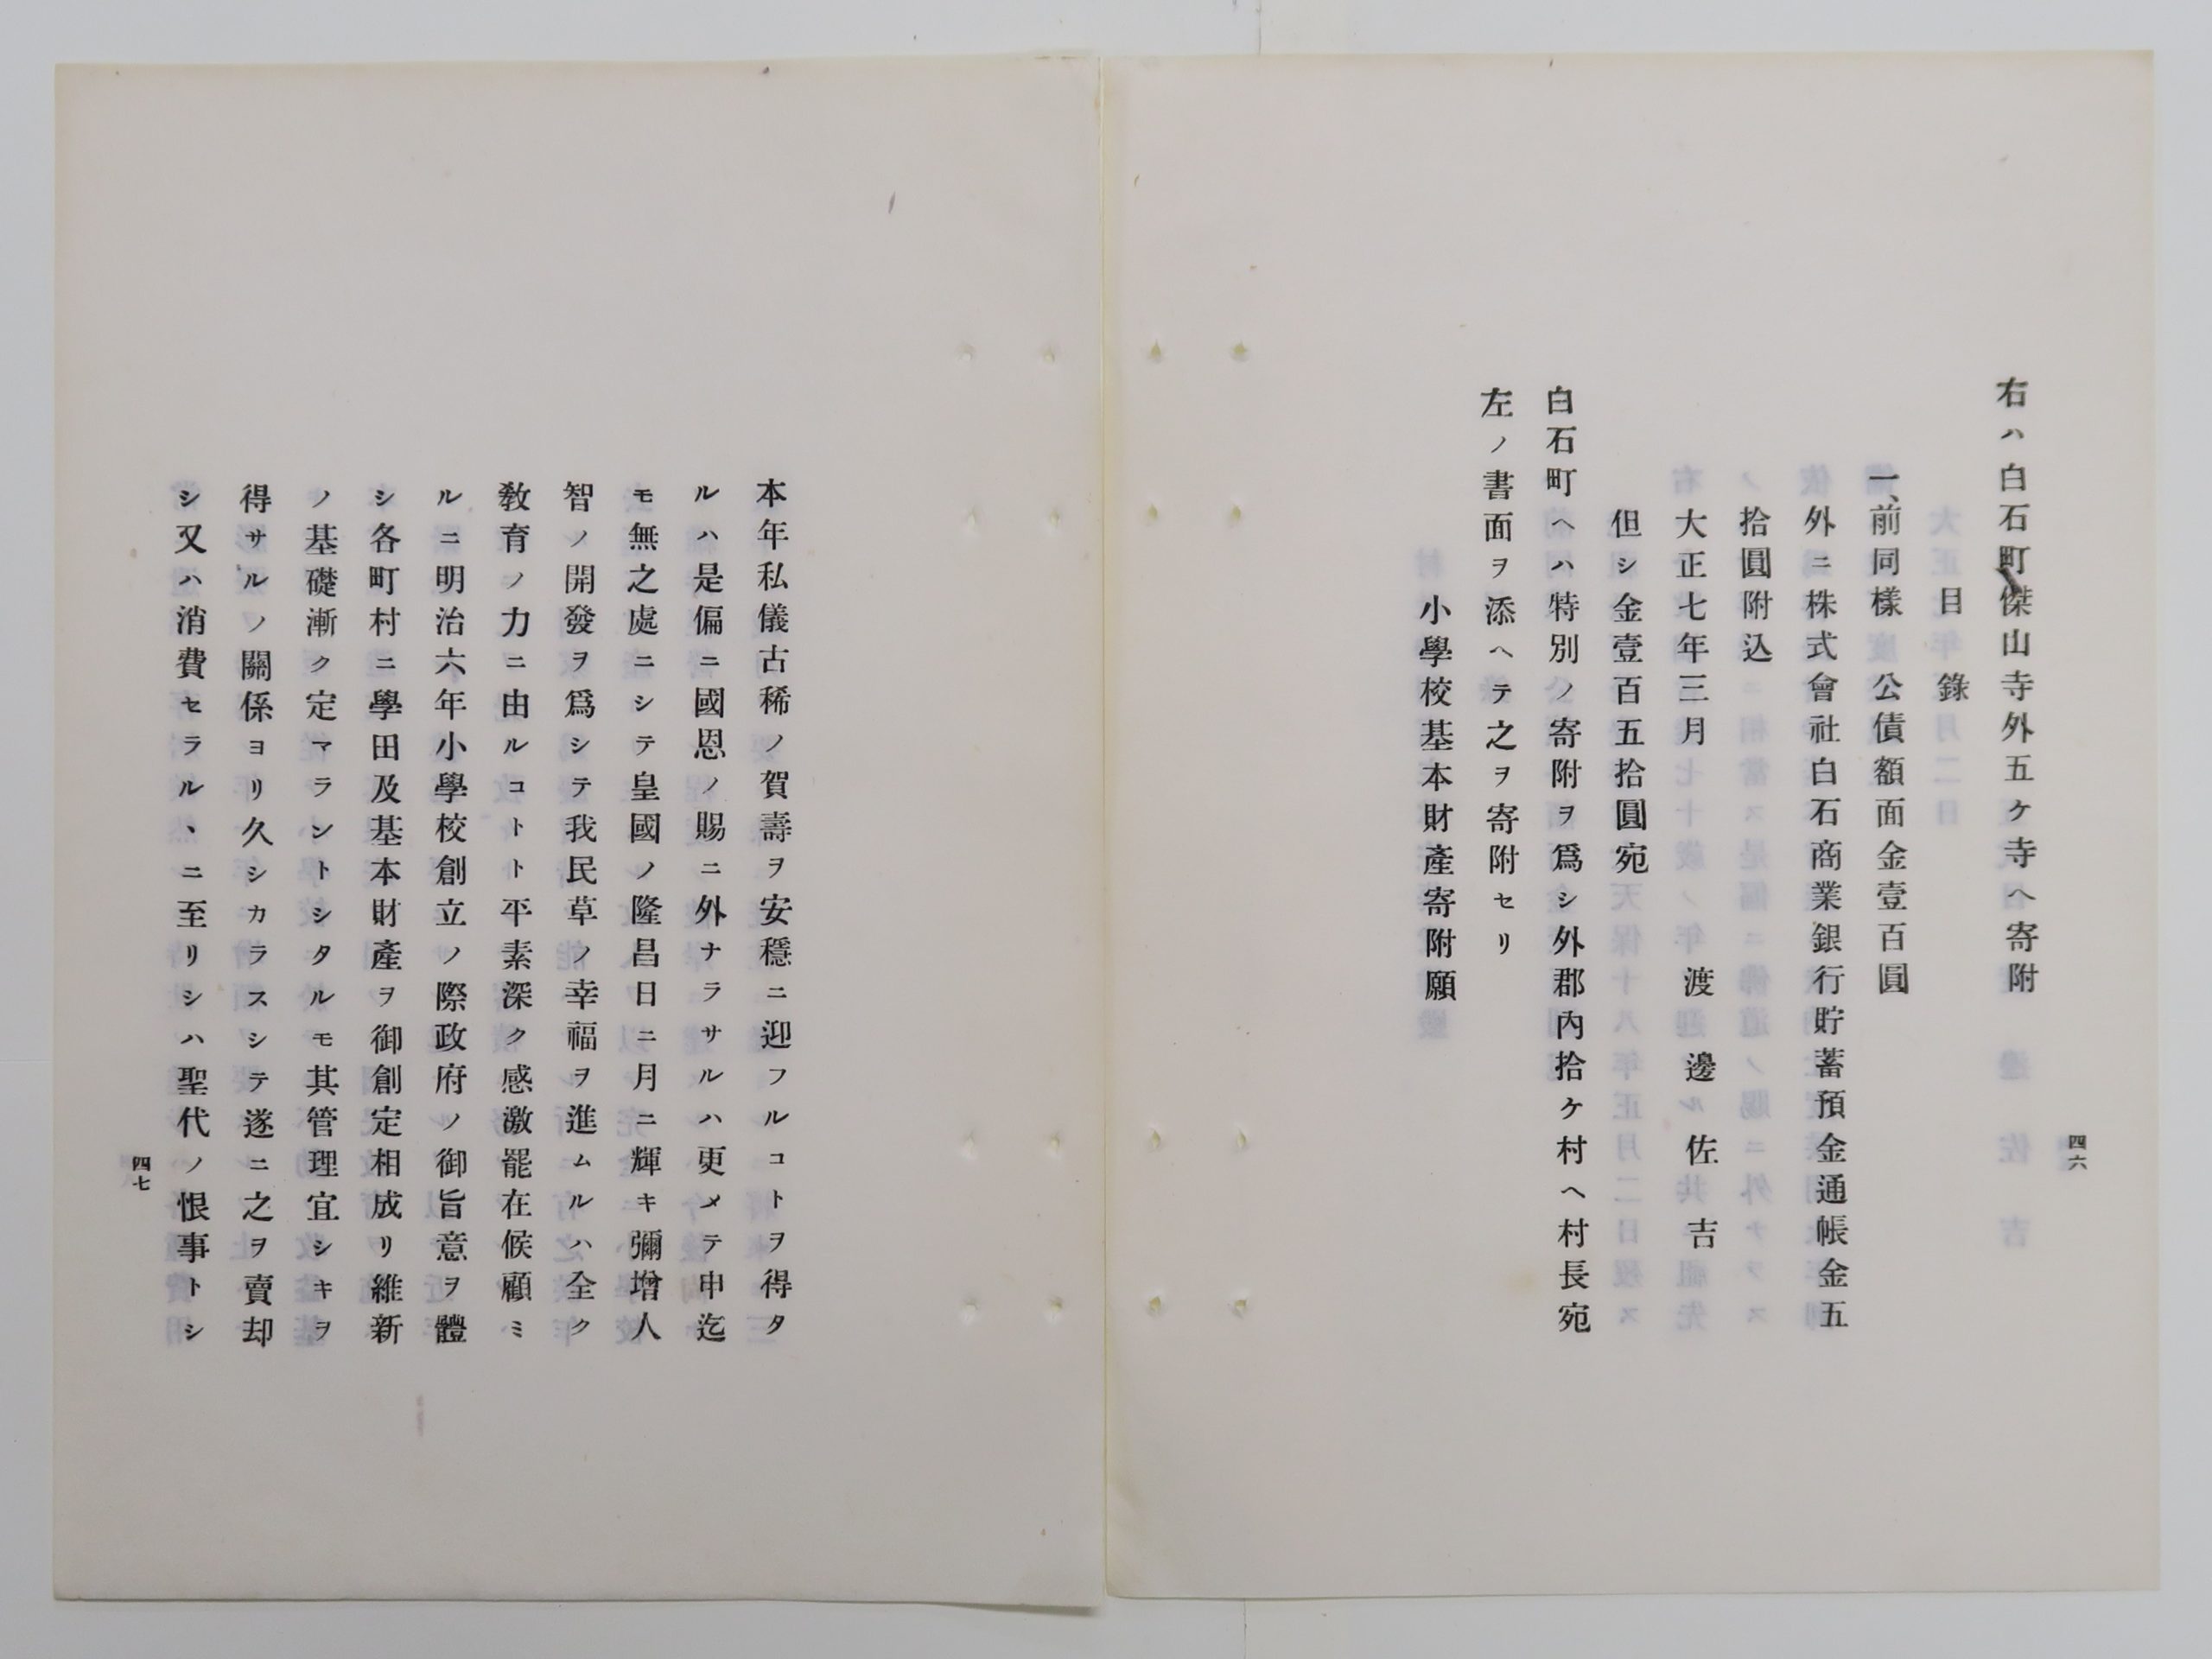 四六
右ハ白石町傑山寺外五ケ寺ヘ寄附
目錄
一、前同樣　公債額面金壹百圓
外ニ株式會社白石商業銀行貯蓄預金通帳金五
拾圓附込
大正七年三月　渡邊佐吉
但シ金壹百五拾圓宛
白石町ヘハ特別ノ寄附ヲ爲シ外郡內拾ケ村ヘ村長宛
左ノ書面ヲ添ヘテ之ヲ寄附セリ
小學校基本財產寄附願
本年私儀古稀ノ賀壽ヲ安穩ニ迎フルコトヲ得タ
ルハ是偏ニ國恩ノ賜ニ外ナラサルハ更メテ申迄
モ無之處ニシテ皇國ノ隆昌日ニ月ニ輝キ彌增人
智ノ開發ヲ爲シテ我民草ノ幸福ヲ進ムルハ全ク
敎育ノ力ニ由ルコトト平素深ク感激罷在候顧ミ
ルニ明治六年小學校創立ノ際政府ノ御旨意ヲ體
シ各町村ニ學田及基本財產ヲ御創定相成リ維新
ノ基礎漸ク定マラントシタルモ其管理宜シキヲ
得サルノ關係ヨリ久シカラスシテ遂ニ之ヲ賣却
シ又ハ消費セラルヽニ至リシハ聖代ノ恨事トシ
四七